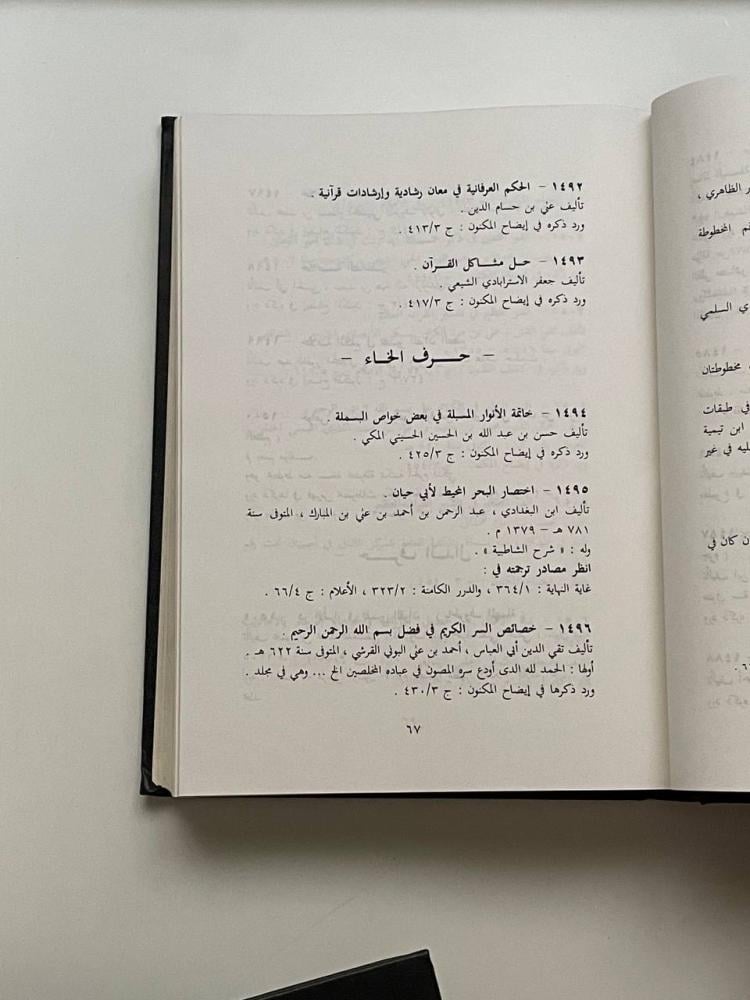 ١٤٩٢ - الحكم العرفانية في معان رشادية وإرشادات قرآنية .
تأليف علي بن حسام الدين .
ورد ذكره في إيضاح المكنون : ج ٤١٣/٣ .
١٤٩٣ - حل مشاكل القرآن .
تأليف جعفر الاسترابادي الشيعي .
ورد ذكره في إيضاح المكنون : ج ٤١٧/٣ .
- حرف الخاء -
١٤٩٤ - خاتمة الأنوار المسبلة في بعض خواص البسملة .
تأليف حسن بن عبد الله بن الحسين الحسيني المكي .
ورد ذكره في إيضاح المكنون : ج ٤٢٥/٣ .
١٤٩٥ - اختصار البحر المحيط لأبي حيان .
تأليف ابن البغدادي ، عبد الرحمن بن أحمد بن علي بن المبارك ، المتوفى سنة
٧٨١ هـ - ١٣٧٩ م .
وله : « شرح الشاطبية » .
انظر مصادر ترجمته في :
غاية النهاية : ٣٦٤/١ ، والدرر الكامنة : ٣٢٣/٢ ، الأعلام : ج ٦٦/٤ .
١٤٩٦ - خصائص السر الكريم في فضل بسم الله الرحمن الرحيم :
تأليف تقي الدين أبي العباس ، أحمد بن علي البوني القرشي ، المتوفى سنة ٦٢٢ هـ .
أولها : الحمد لله الذى أودع سره المصون في عباده المخلصين الخ ... وهي في مجلد .
ورد ذكرها في إيضاح المكنون : ج ٤٣٠/٣ .
٦٧
الظاهري ،
المخطوطة
السلمي
مخطوطتان
في طبقات
ابن تيمية
في غير
كان في